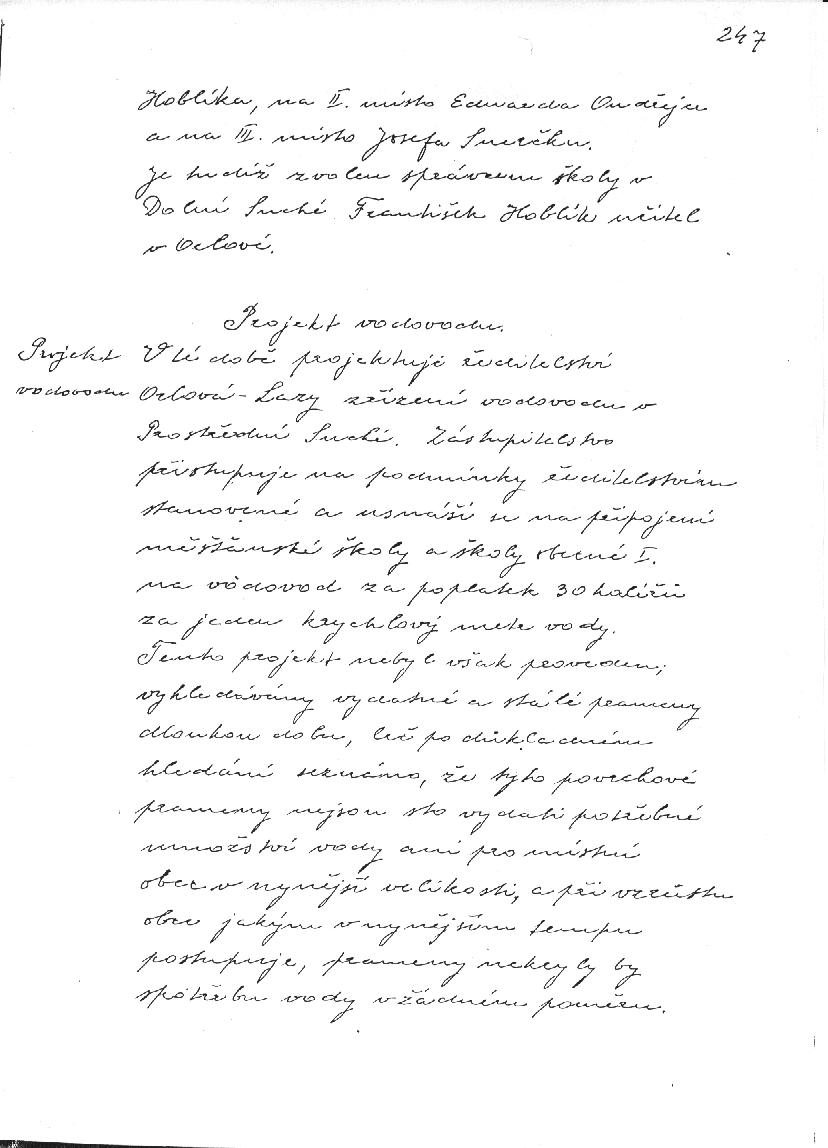 247
Hoblíka, na II. místo Edwarda Ondřeje
a na III. místo Josefa Smrčku.
Je tudíž zvolen správcem školy v
Dolní Suché František Hoblík učitel
v Orlové.
Projekt vodovodu.
Projekt
vodovodu
V té době projektuje ředitelství
Orlová-Lazy zřízení vodovodu v
Prostřední Suché. Zastupitelstvo
přistupuje na podmínky ředitelstvím
stanovené a usnáší se na připojení
měšťanské školy a školy obecné I.
na vodovod za poplatek 30 haléřů
za jeden krychlový metr vody.
Tento projekt nebyl však proveden;
vyhledávány vydatné a stálé prameny
dlouhou dobu, leč po důkladném
hledání seznámo, že tyto povrchové
prameny nejsou sto vydati potřebné
množství vody ani pro místní
obec v nynější velikosti, a při vzrůstu
obce jakým v nynějším tempu
postupuje, prameny nekryly by
spotřebu vody v žádném poměru.